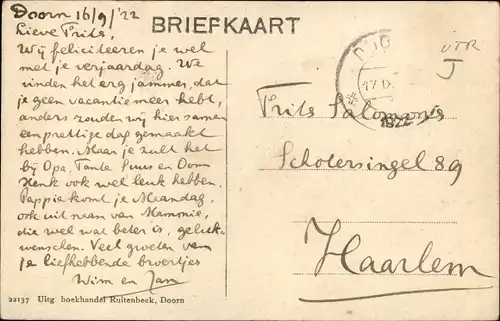 Doorn 16/9/'22
BRIEFKAART
Lieve Frits,
Wij feliciteeren je wel
met je verjaardag. We
vinden het erg jammer, dat
je geen vacantie meer hebt,
anders zouden wij hier samen
een prettige dag gemaakt
hebben. Maar je zult het
bij Opa, Tante Suus en Oom
Henk ook wel leuk hebben.
Pappie komt je Maandag,
ook uit naam van Mammie,
die wel wat beter is, geluk-
wenschen. Veel groeten van
je liefhebbende broertjes
Wim en Jan
UTR
J
Frits Salomons
Schotersingel 89
Haarlem
22137 Uitg boekhandel Ruitenbeek, Doorn